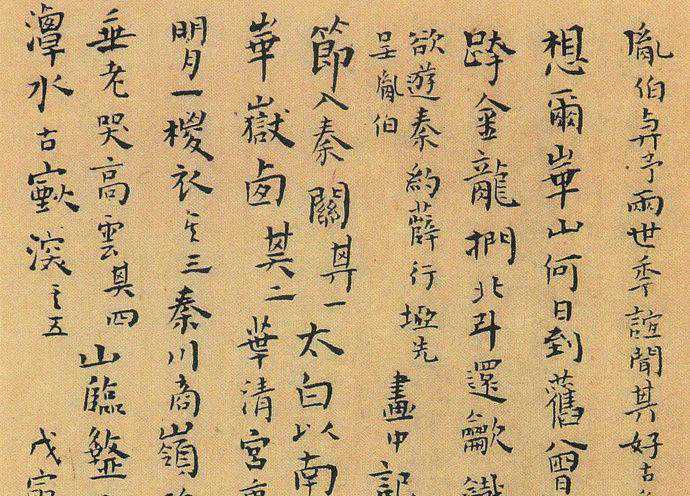 胤伯亭兩世秊誼聞其好古
想爾華山何日到舊曾
跨金龍捫北斗還歙鐵
欲遊秦約薛行塢先
呈胤伯
畫中記
節入秦關其一太白以南
華嶽面其二華清宮
明月一稷衣其三秦川商嶺
垂老哭高雲其四山臨盩
潭水古歡深其五戊寅